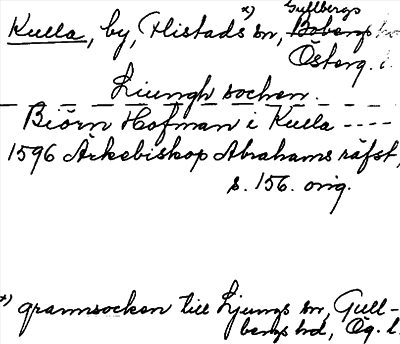 Gullbergs
Kulla, by, Flistads x) sn, Bobergs hd
Österg. l.
Ljungh socken.
Biörn Hofman i Kulla ----
1596 Ärkebiskop Abrahams räfst,
s. 156. orig.
x) grannsocken till Ljungs sn, Gull-
bergs hd, Ög. l.